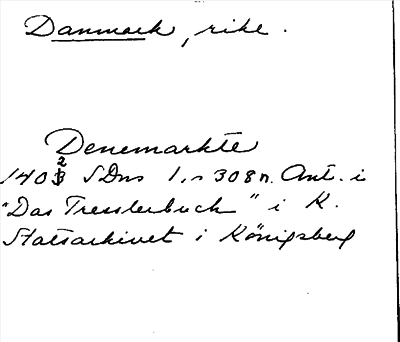 Danmark, rike.
Denemarkte
1402 SDns 1, n 308 n. Ant. i
"Das Tresslerbuch" i K.
Statsarkivet i Königsberg